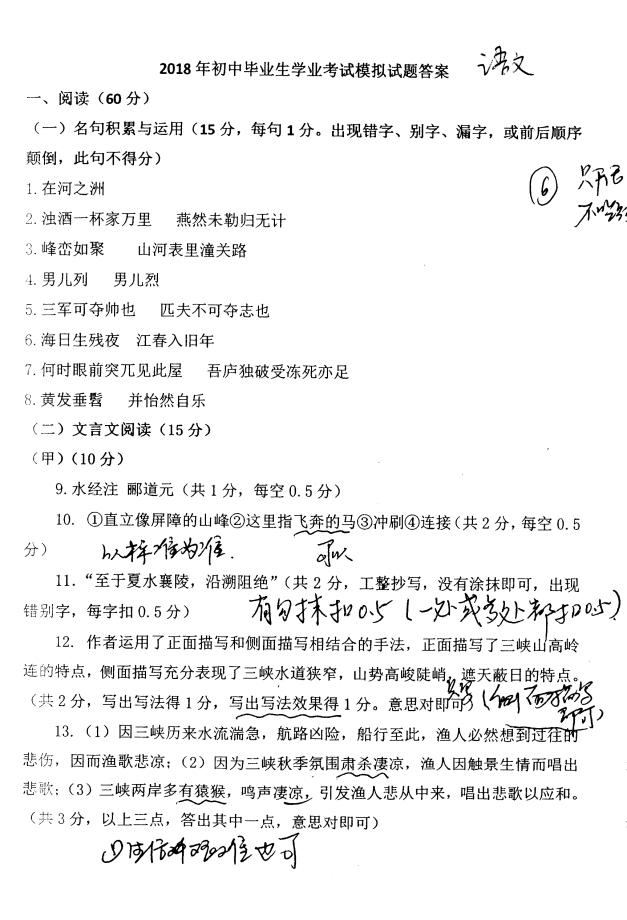 2018 年初中毕业生学业考试模拟试题答案 语文
一、阅读（60 分）
（一）名句积累与运用（15 分，每句 1 分。出现错字、别字、漏字，或前后顺序
颠倒，此句不得分）
1.在河之洲
⑥
2.浊酒一杯家万里 燕然未勒归无计
3.峰峦如聚 山河表里潼关路
4.男儿列 男儿烈
5.三军可夺帅也 匹夫不可夺志也
6.海日生残夜 江春入旧年
7.何时眼前突兀见此屋 吾庐独破受冻死亦足
8.黄发垂髫 并怡然自乐
（二）文言文阅读（15 分）
（甲）（10 分）
9.水经注 郦道元（共 1 分，每空 0.5 分）
10. ①直立像屏障的山峰②这里指飞奔的马③冲刷④连接（共 2 分，每空 0.5
分） 以标准为准. 可以
11.“至于夏水襄陵，沿溯阻绝”（共 2 分，工整抄写，没有涂抹即可，出现
错别字，每字扣 0.5 分） 有勾抹扣0.5（一处或多处都扣0.5）
12. 作者运用了正面描写和侧面描写相结合的手法，正面描写了三峡山高岭
连的特点，侧面描写充分表现了三峡水道狭窄，山势高峻陡峭，遮天蔽日的特点。
（共 2 分，写出写法得 1 分，写出写法效果得 1 分。意思对即可）
即可）
13.（1）因三峡历来水流湍急，航路凶险，船行至此，渔人必然想到过往的
悲伤，因而渔歌悲凉；（2）因为三峡秋季氛围肃杀凄凉，渔人因触景生情而唱出
悲歌；（3）三峡两岸多有猿猴，鸣声凄凉，引发渔人悲从中来，唱出悲歌以应和。
（共 3 分，以上三点，答出其中一点，意思对即可）
也可